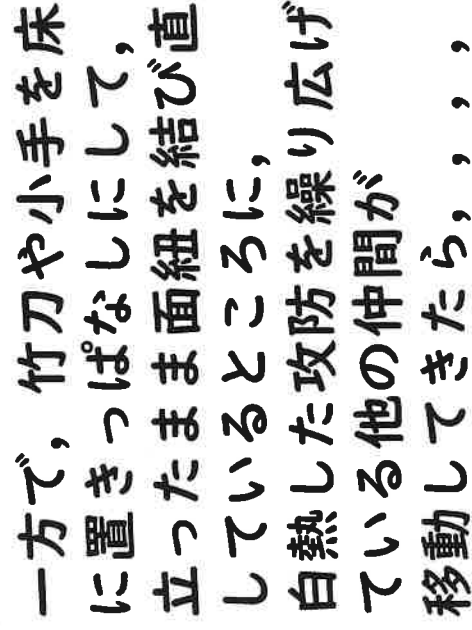 一方で，竹刀や小手を床
に置きっぱなしにして，
立ったまま面紐を結び直
しているところに，
白熱した攻防を繰り広げ
ている他の仲間が
移動してきたら，，，，，